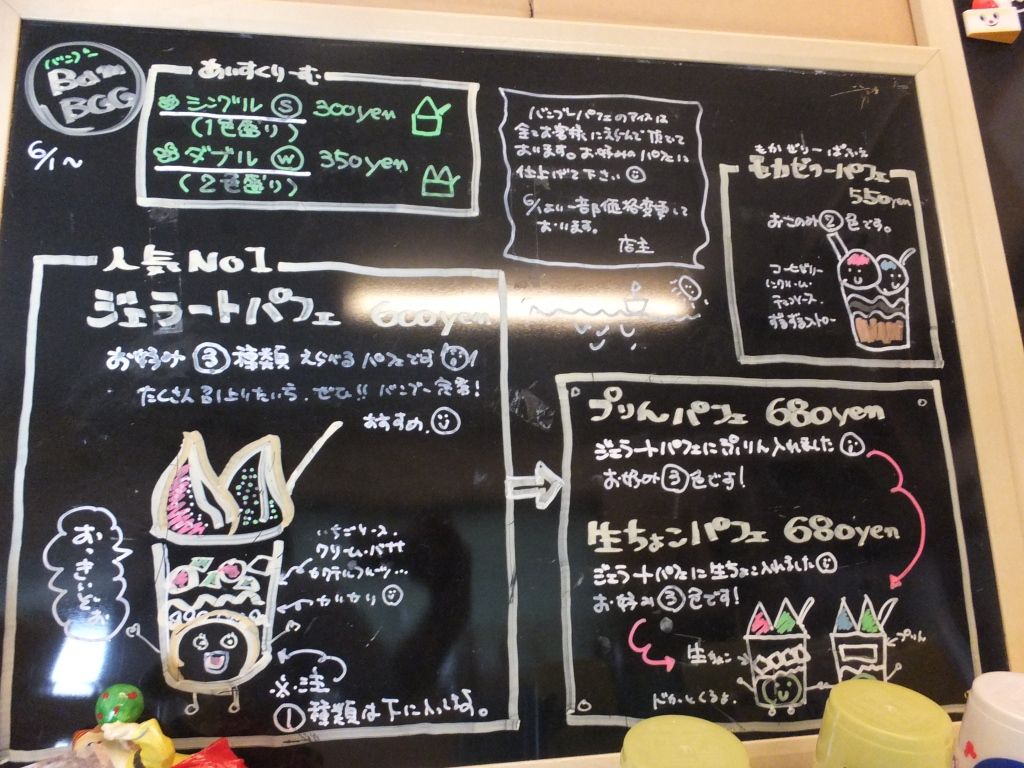 バンブー
Bam
BGG
6/1~
あいすくりーむ
シングル S 300yen
(1色盛り)
ダブル W 350yen
(2色盛り)
バンブーパフェのアイスは
全てお客様にえらんで頂いて
おります。お好みのパフェに
仕上げて下さい
6/1より一部価格変更して
おります。
店主
もかぜりーぱふぇ
モカゼリーパフェ
550yen
おこのみ2色です。
コーヒーゼリー
チョコソース
人気No1
ジェラートパフェ 600yen
お好み3種類えらべるパフェです!
たくさん
ぜひ!!バンブー定番!
おすすめ。
おっきいどぉ
いちごソース
クリーム・バナナ
カクテルフルーツ...
※注
1種類は下に入ってます。
プリンパフェ 680yen
ジェラートパフェにぷりん入れました
お好み3色です!
生ちょこパフェ 680yen
ジェラートパフェに生ちょこ入れました
お好み3色です!
生ちょこ
プリン
ドカッとくるよ。